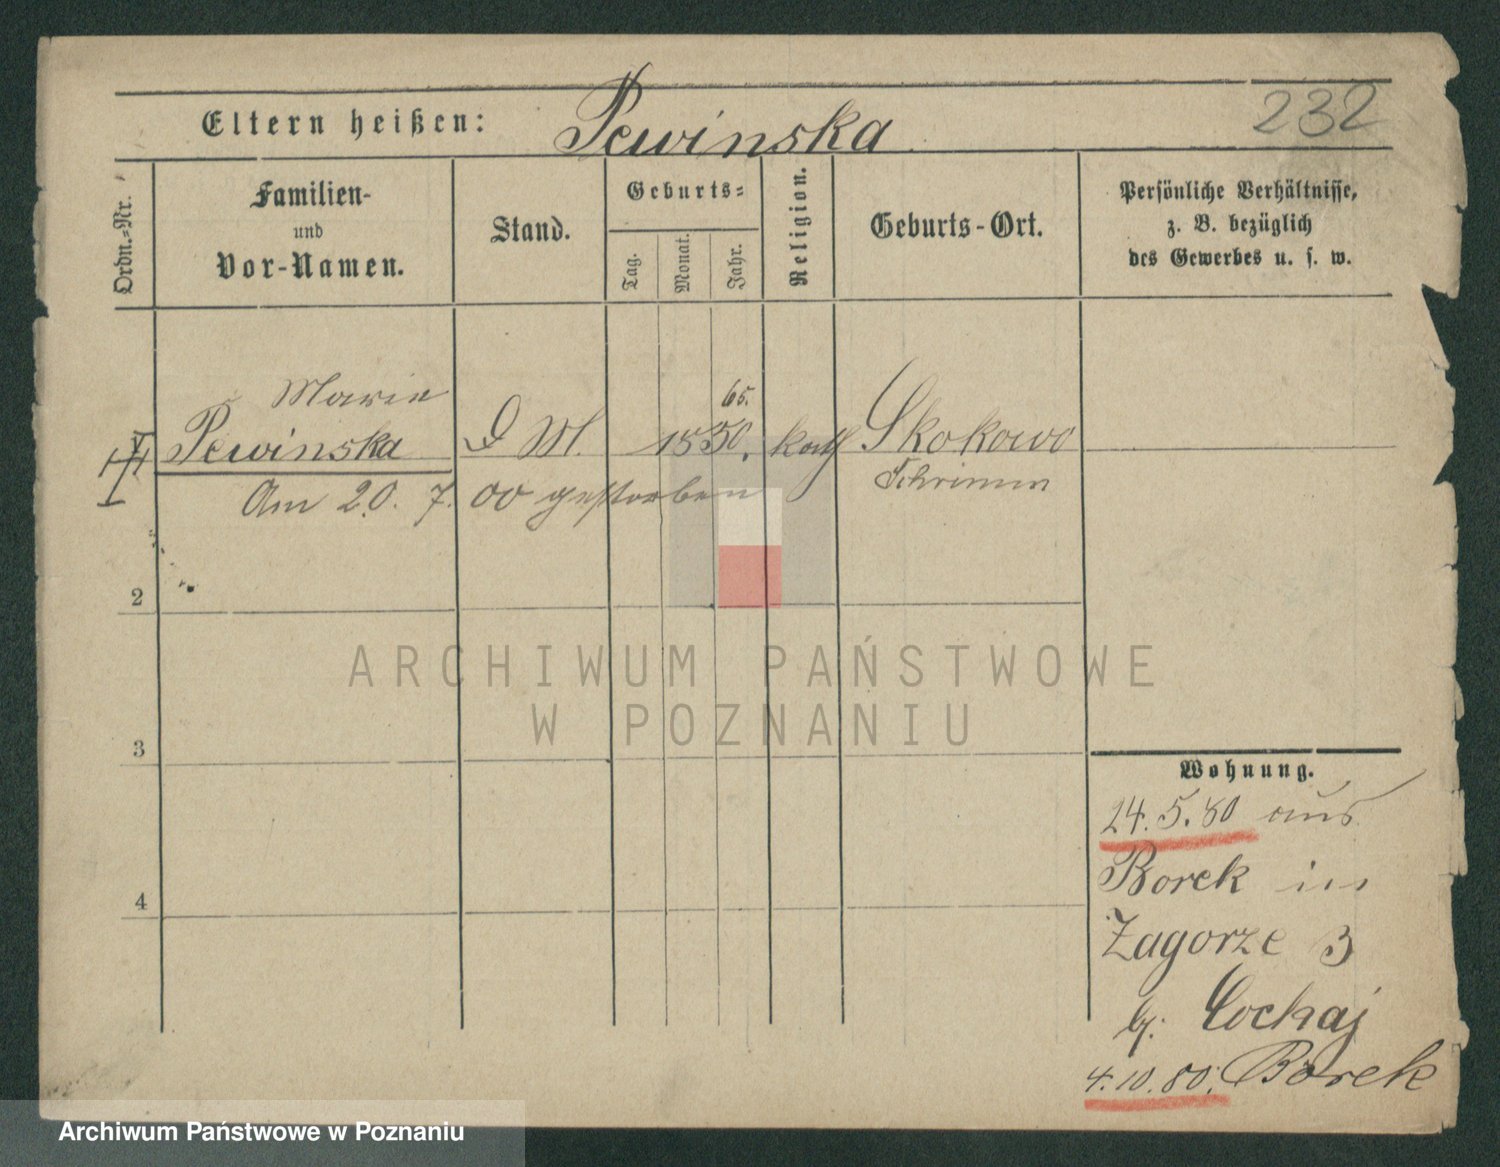 232
Eltern heißen: Pewinska
Ordn.-Nr.
Familien-
und
Vor-Namen.
Stand.
Geburts-
Tag.
Monat.
Jahr.
Religion.
Geburts-Ort.
Persönliche Verhältnisse,
z. B. bezüglich
des Gewerbes u. s. w.
Marie
65.
Pewinska D M. 1850. kath Skokowo
Schrimm
Am 20. 7. 00 gestorben
2
3
4
Wohnung.
24. 5. 80 aus
Borek in
Zagorze 3
b. Lochaj
4. 10. 80. Borek
ARCHIWUM PAŃSTWOWE
W POZNANIU
Archiwum Państwowe w Poznaniu